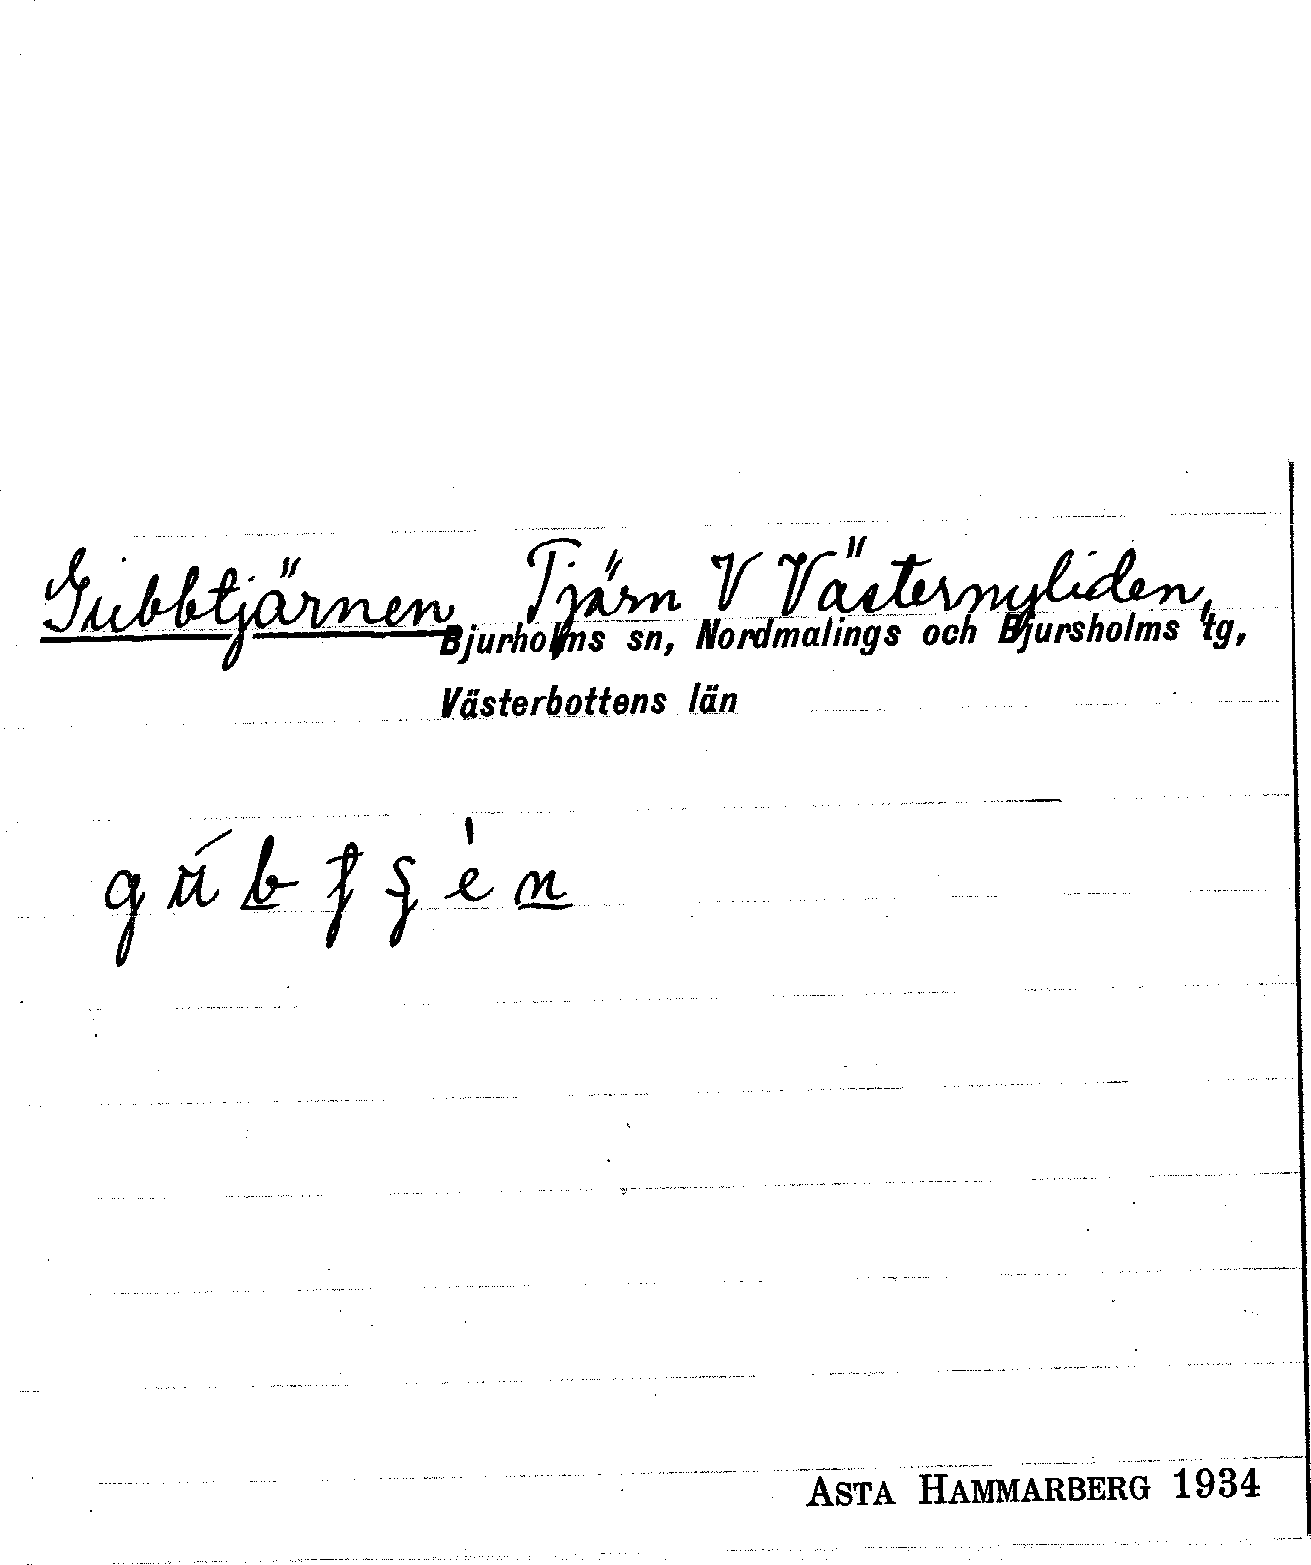 Gubbtjärnen Tjärn V Västernyliden,
Bjurholms sn, Nordmalings och Bjursholms tg,
Västerbottens län
ASTA HAMMARBERG 1934